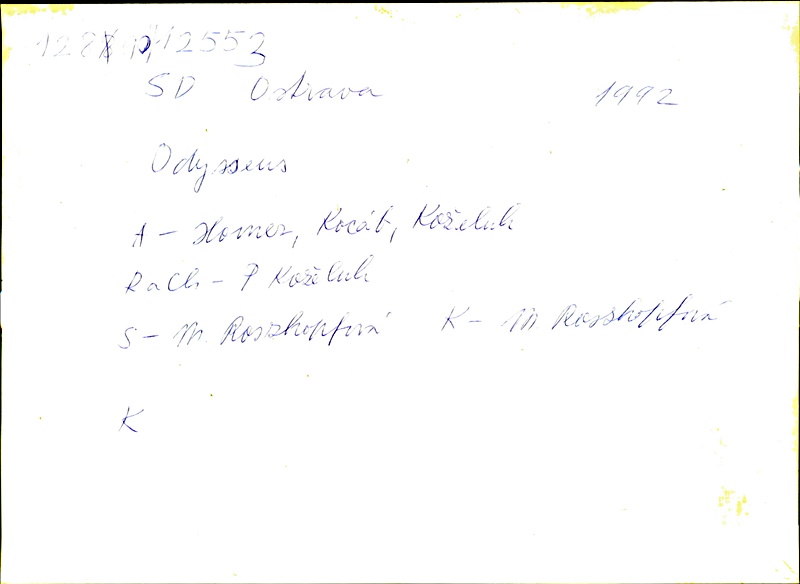 12553
SD Ostrava 1992
Odysseus
A - Homer, Kocáb, Koželuh
RaCh - P Koželuh
S - M. Roszkopfová K - M Roszkopfová
K